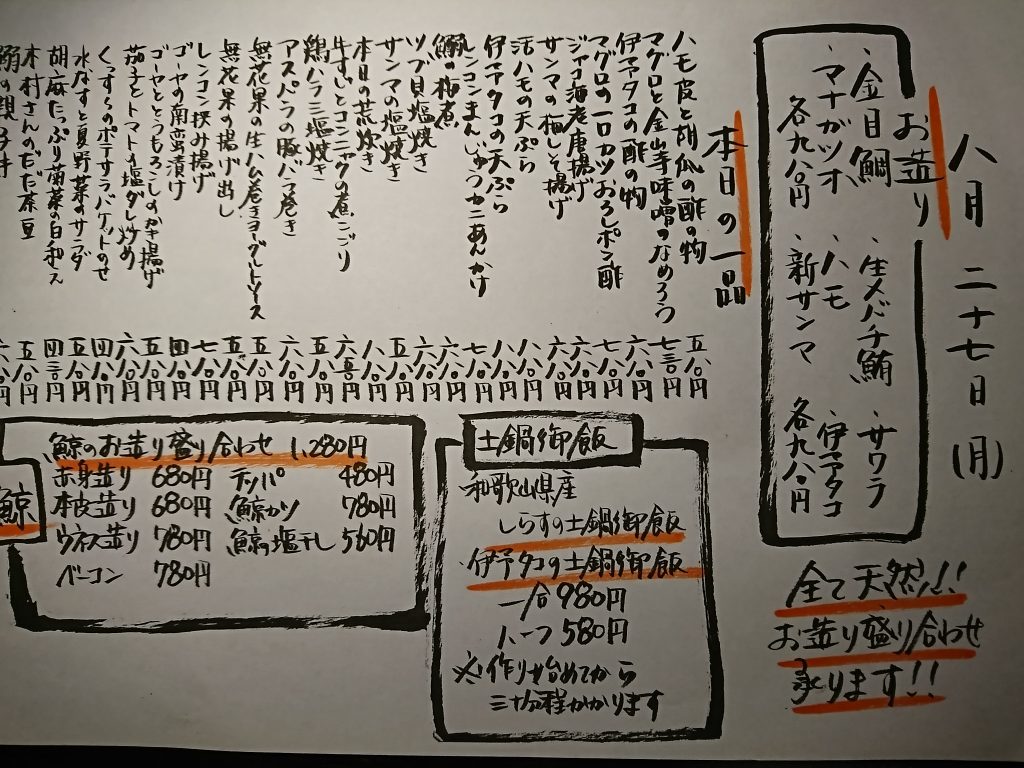 八月二十七日(月)
お造り
・金目鯛 ・生メバチ鮪 ・サワラ
・マナガツオ ・ハモ ・伊予タコ
・新サンマ
各九八〇円 各九八〇円
全て天然!!
お造り盛り合わせ
承ります!!
本日の一品
ハモ皮と胡瓜の酢の物 五八〇円
マグロと金山寺味噌のなめろう 七三〇円
伊予タコの酢の物 六八〇円
マグロの一口カツおろしポン酢 七八〇円
ジャコ海老唐揚げ 六八〇円
サンマの梅しそ揚げ 八八〇円
活ハモの天ぷら
伊予タコの天ぷら 八八〇円
レンコンまんじゅうカニあんかけ 七八〇円
鰯の梅煮
ツブ貝塩焼き 六八〇円
サンマの塩焼き
本日の荒炊き 八八〇円
牛すじとコンニャクの煮こごり
鶏ハラミ塩焼き 五八〇円
アスパラの豚バラ巻き 六八〇円
無花果の生ハム巻きヨーグルトソース 五八〇円
無花果の揚げ出し
レンコン挟み揚げ 七八〇円
ゴーヤの南蛮漬け
ゴーヤととうもろこしのかき揚げ 五八〇円
茄子とトマトの塩ダレ炒め 六八〇円
くっすらのポテサラバケットのせ
水なすと夏野菜のサラダ 五八〇円
胡麻たっぷり南菜の白和え 四三〇円
本村さんのだだ茶豆 五八〇円
土鍋御飯
和歌山県産
しらすの土鍋御飯
伊予タコの土鍋御飯
一合 980円
ハーフ 580円
※作り始めてから
三十分程かかります
鯨
鯨のお造り盛り合わせ 1,280円
赤身造り 680円 テッパ 480円
本皮造り 680円 鯨カツ 780円
ウネス造り 780円 鯨の塩干し 560円
ベーコン 780円